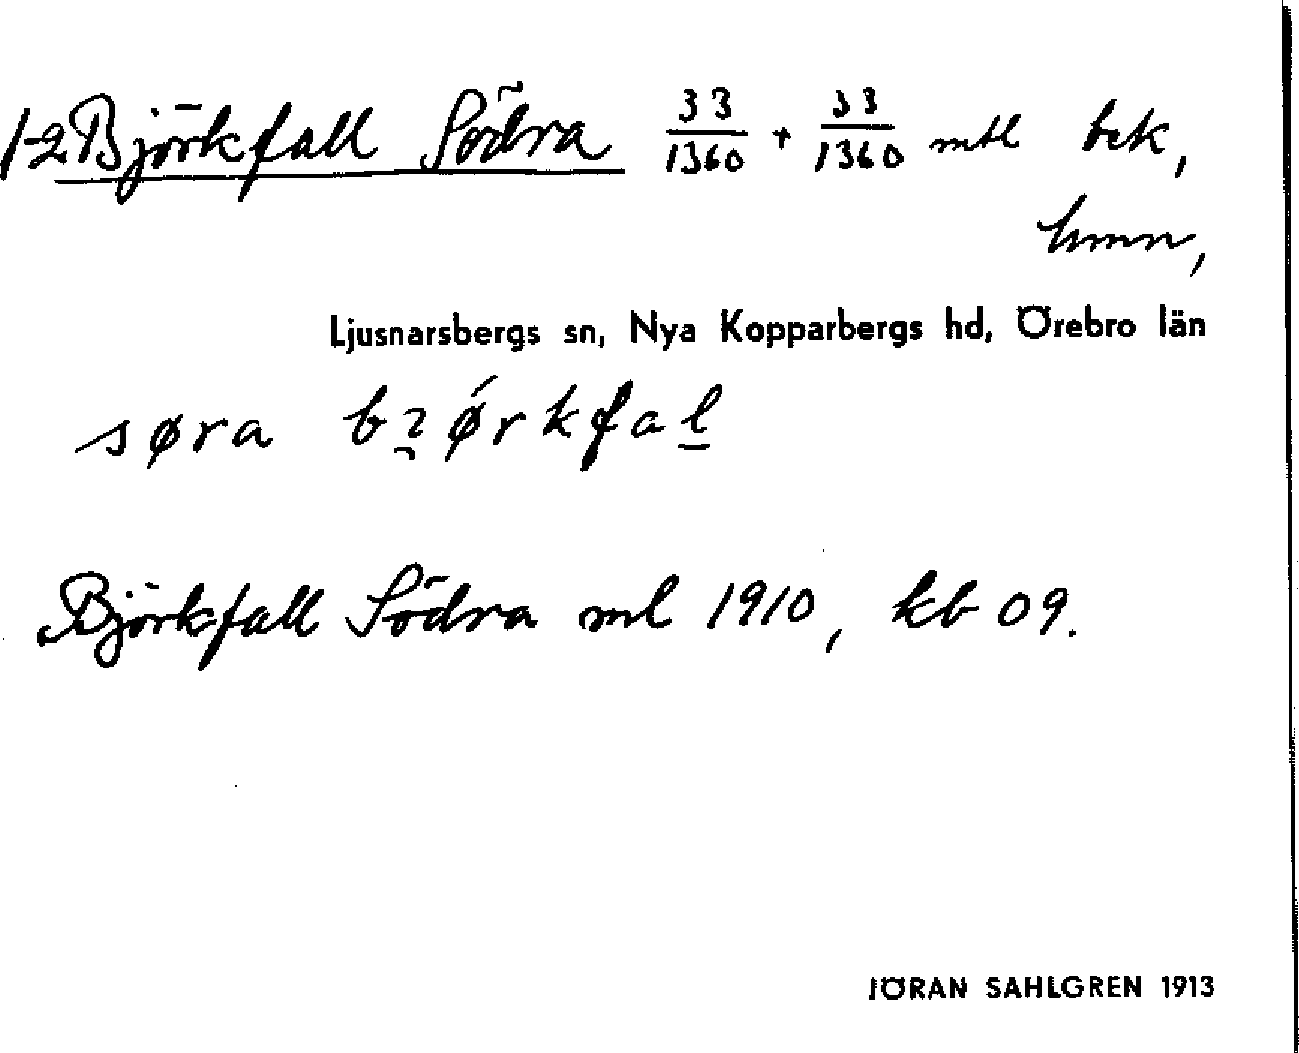 1-2 Björkfall Södra 33/1360 + 33/1360 mtl bek,
hmn,
Ljusnarsbergs sn, Nya Kopparbergs hd, Örebro län
søra bɿ̯ǿrkfal̲
Björkfall Södra ml 1910, kb 09.
JÖRAN SAHLGREN 1913